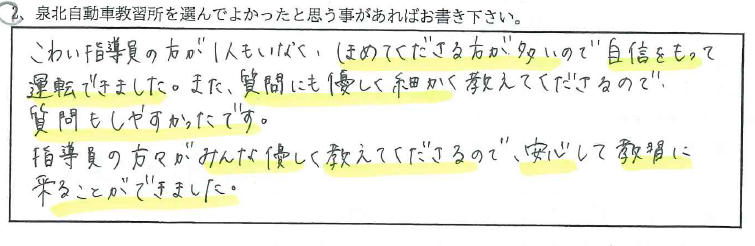 2、泉北自動車教習所を選んでよかったと思う事があればお書き下さい。
こわい指導員の方が1人もいなく、ほめてくださる方が多いので自信をもって
運転できました。また、質問にも優しく細かく教えてくださるので、
質問もしやすかったです。
指導員の方々がみんな優しく教えてくださるので、安心して教習に
来ることができました。